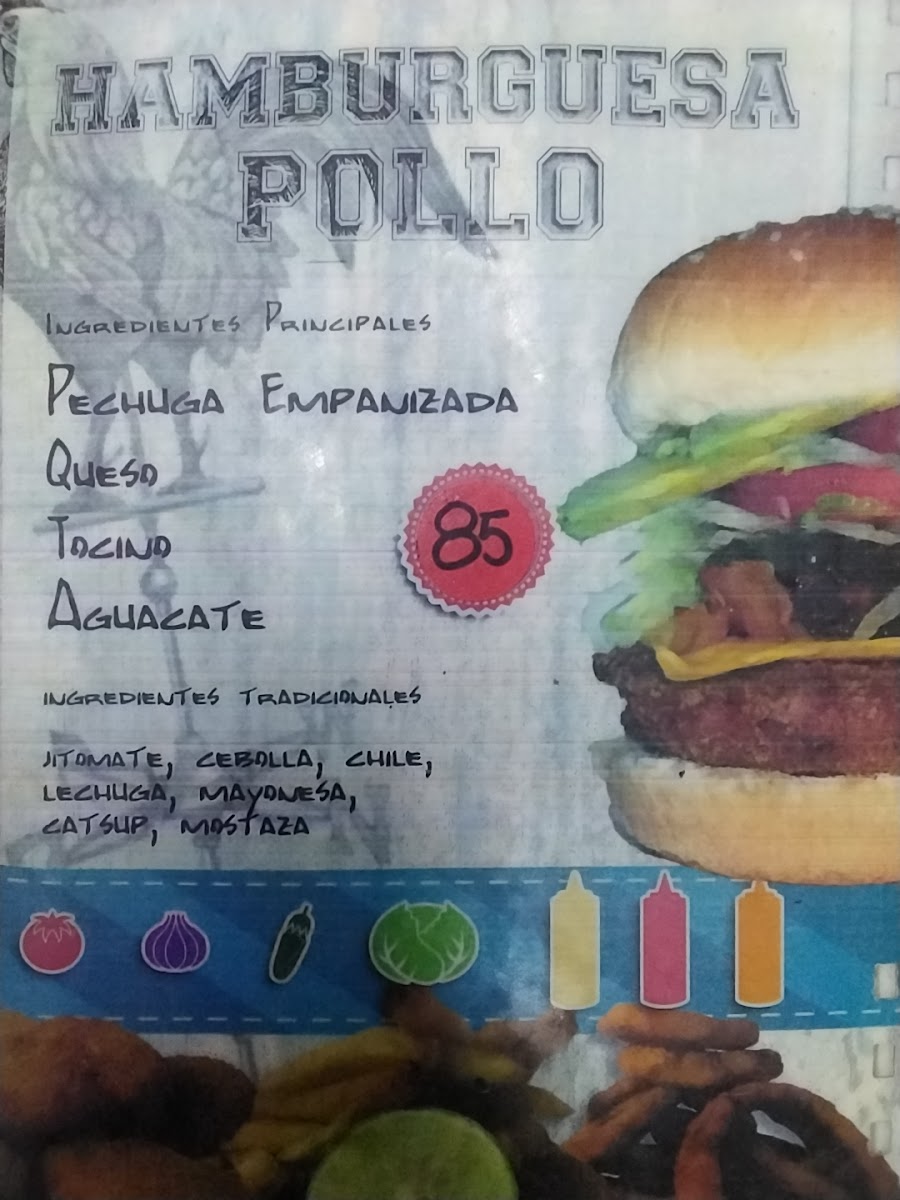 HAMBURGUESA
POLLO
INGREDIENTES PRINCIPALES
PECHUGA EMPANIZADA
QUESO
TOCINO
85
AGUACATE
INGREDIENTES TRADICIONALES
JITOMATE, CEBOLLA, CHILE,
LECHUGA, MAYONESA,
CATSUP, MOSTAZA